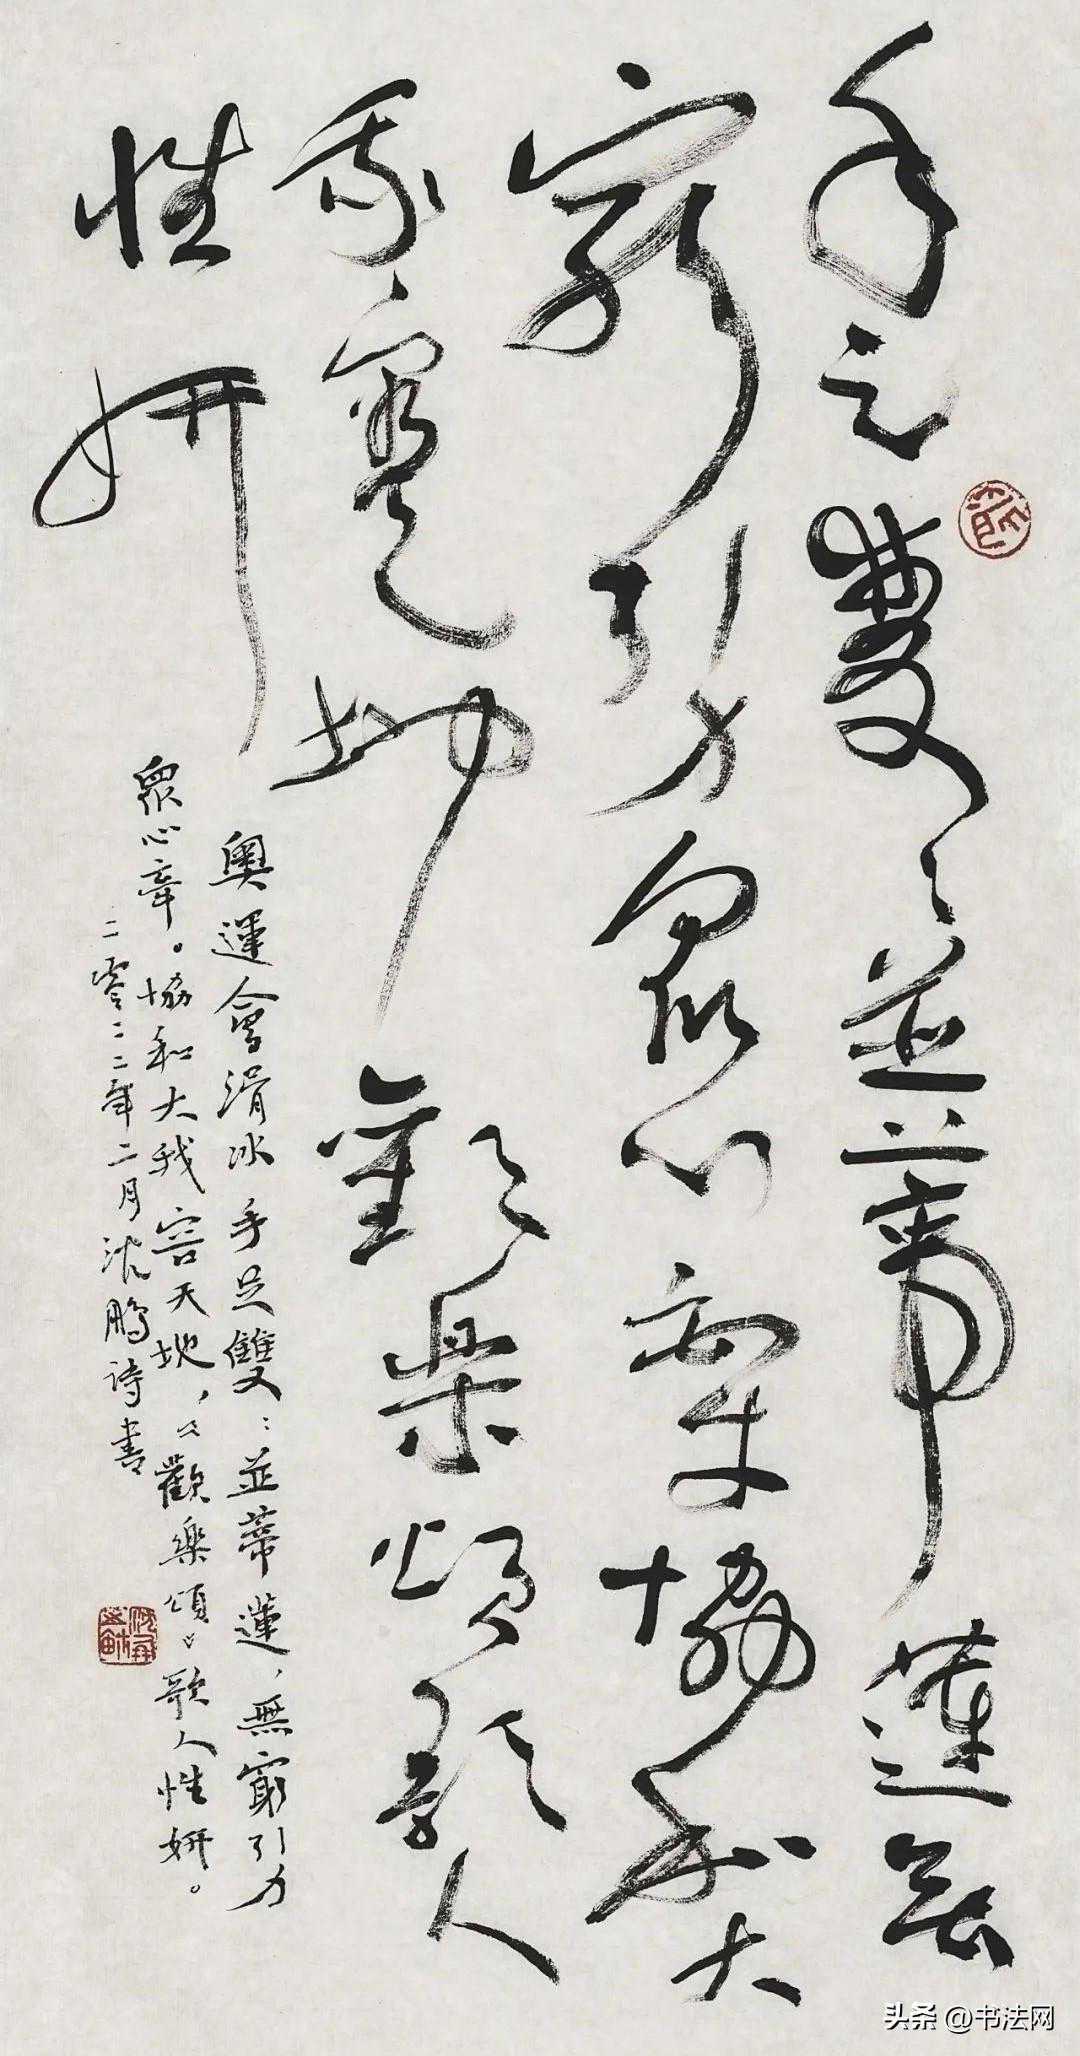 手足雙〻並蒂蓮無
窮引力衆心牽協和大
我容天地歡樂頌歌人
性妍
奧運會滑冰 手足雙〻並蒂蓮，無窮引力
衆心牽。協和大我容天地，《歡樂頌》歌人性妍。
二零二二年二月沈鵬詩書
头条 @书法网